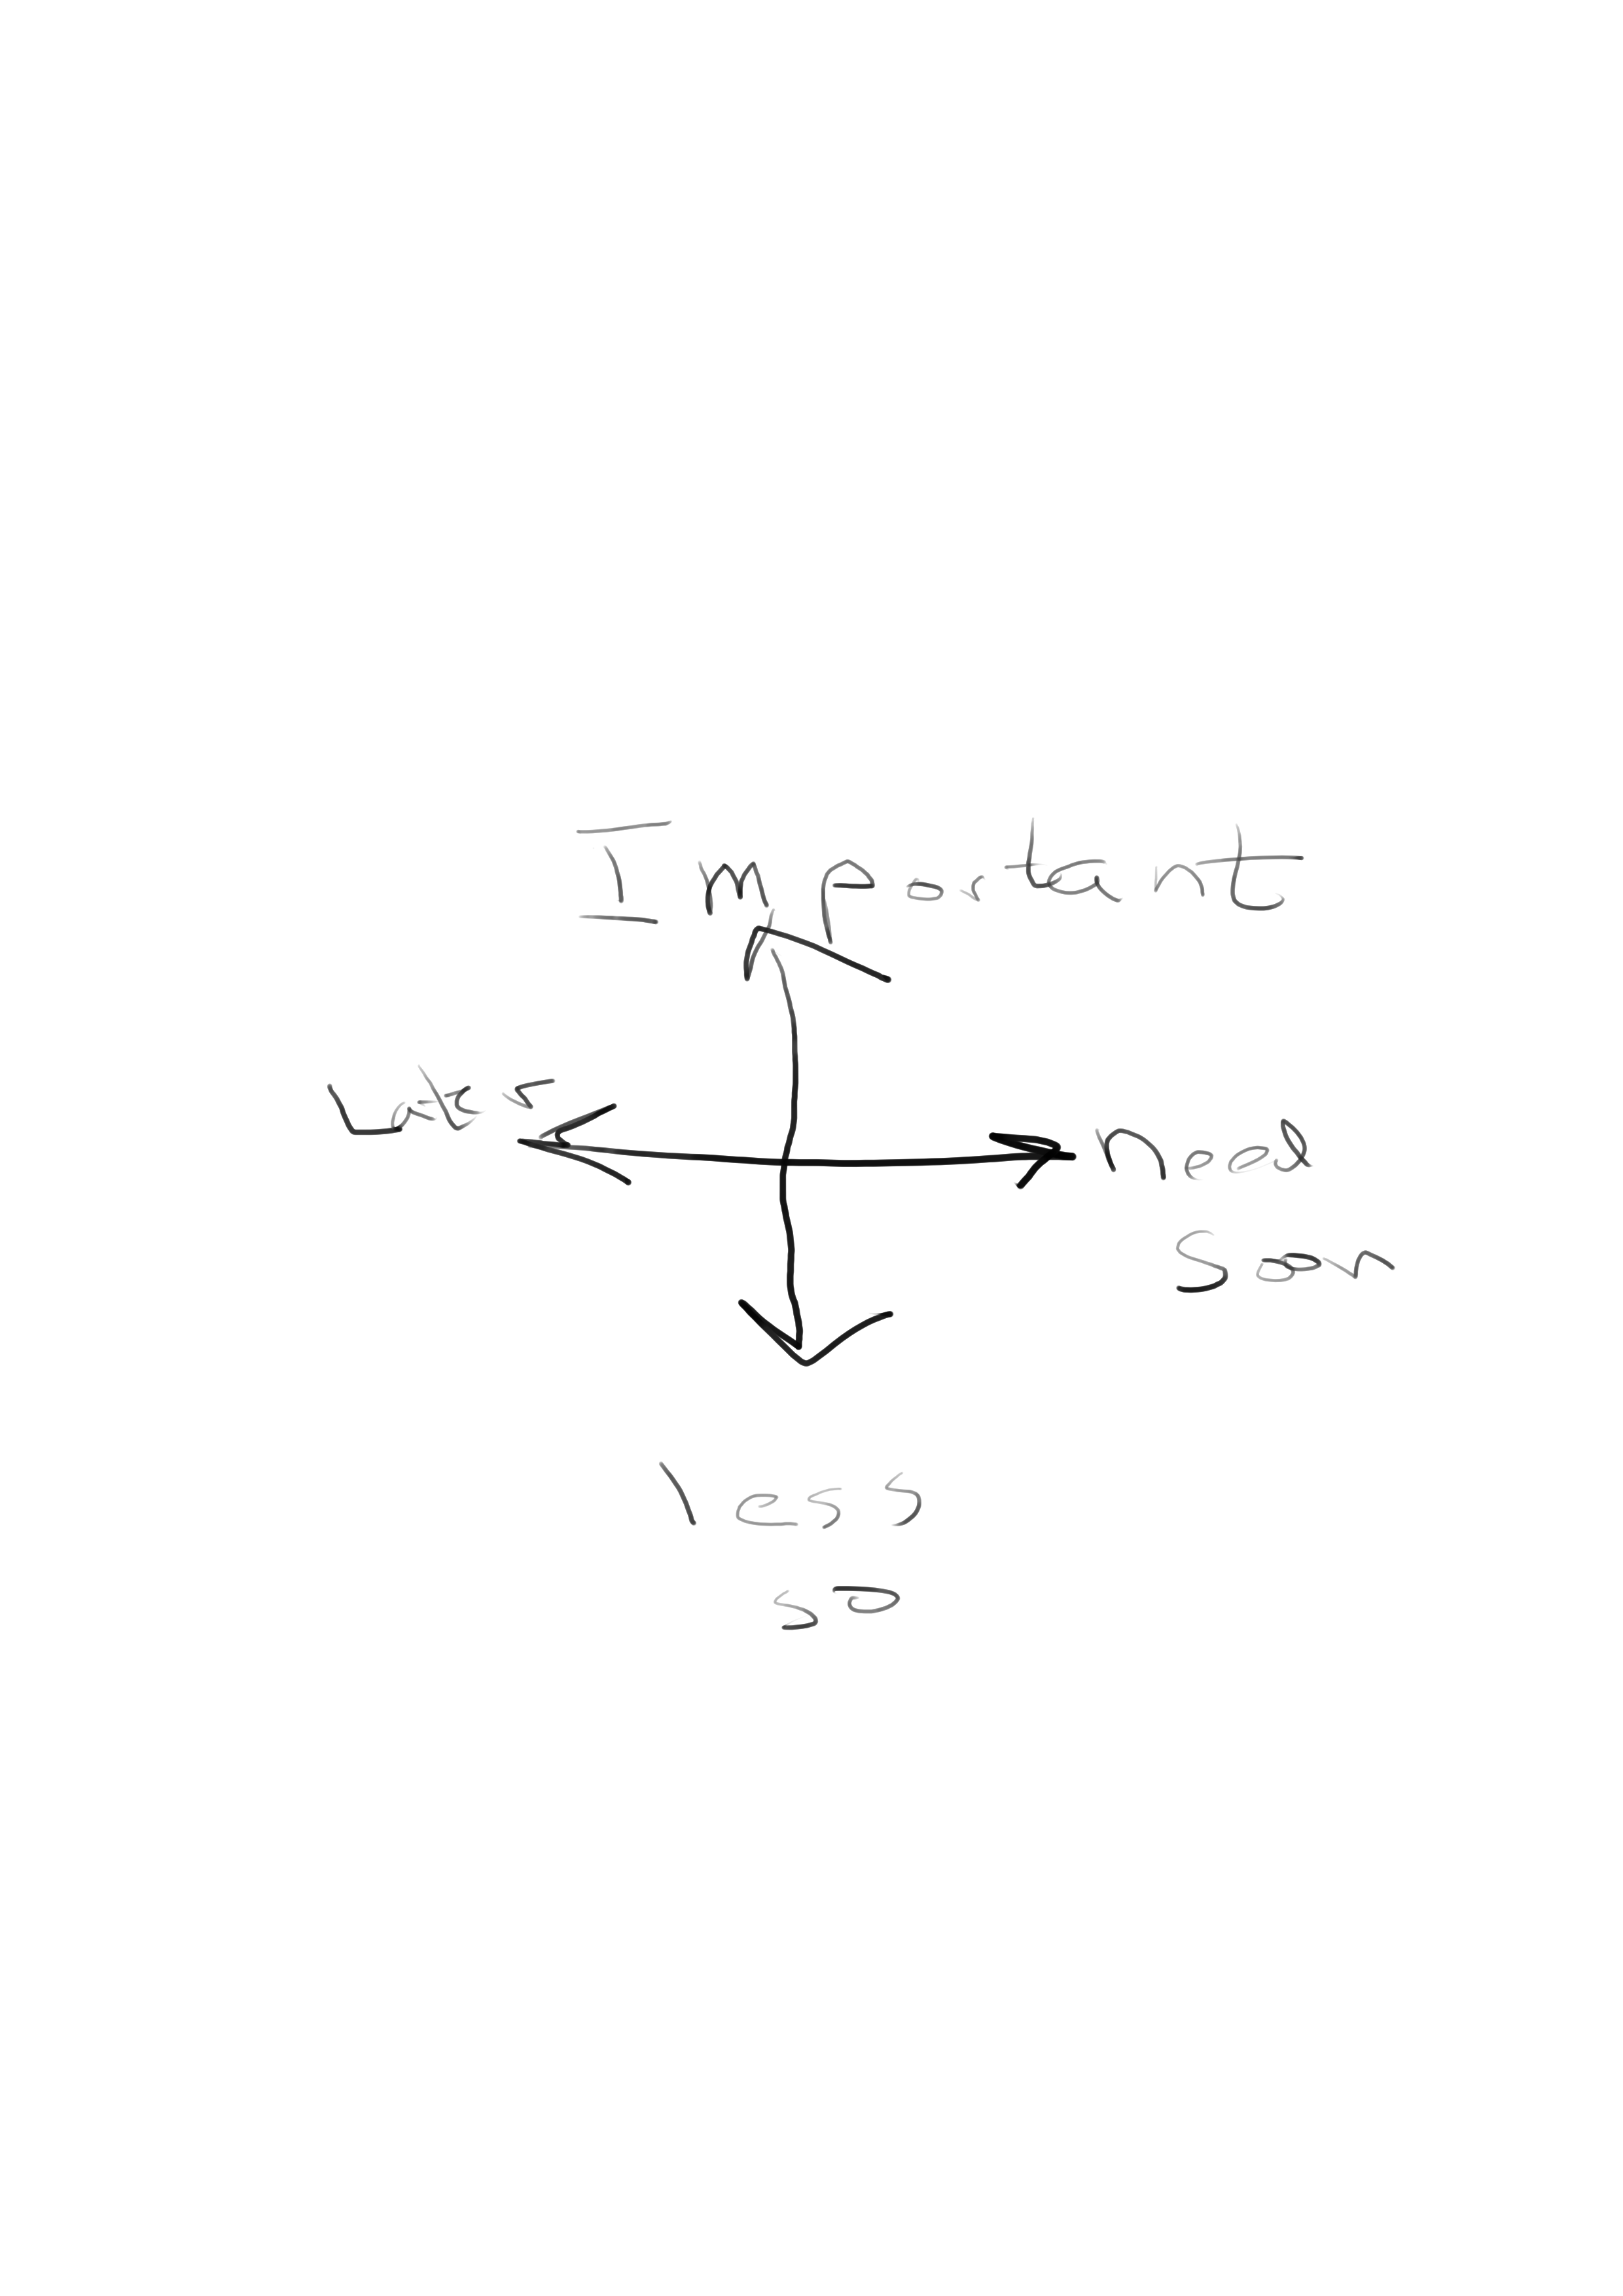 Important
Later
need
soon
less
so